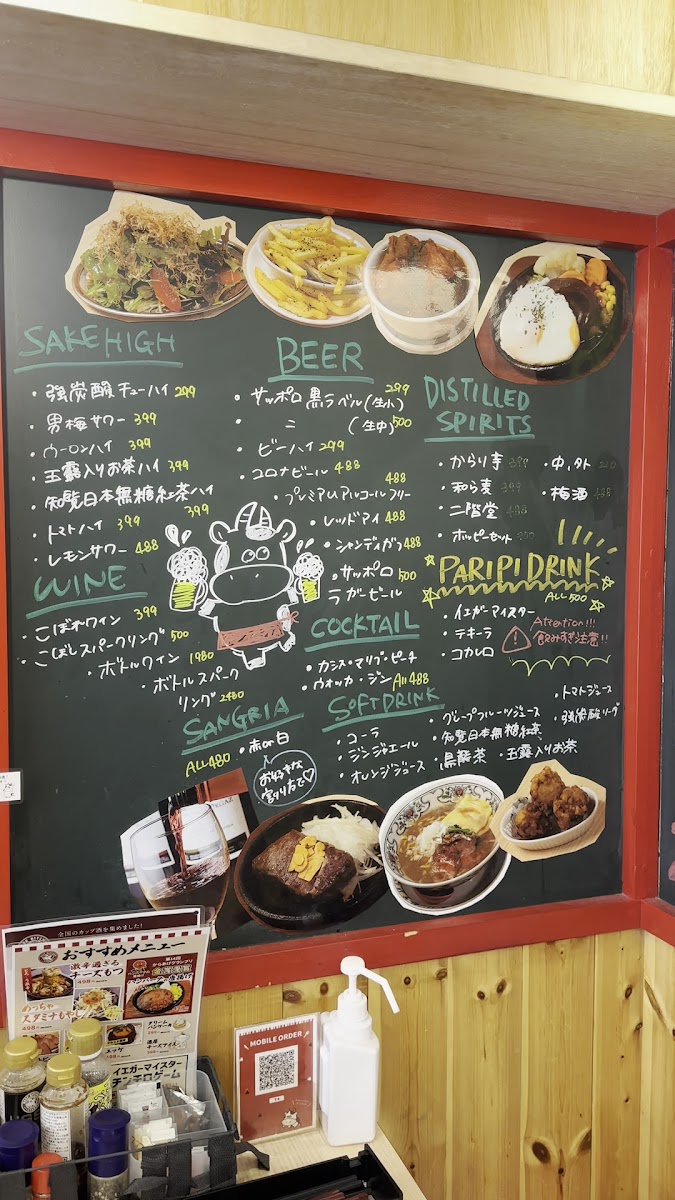 SAKE HIGH
・強炭酸チューハイ 299
・男梅サワー 399
・ウーロンハイ 399
・玉露入りお茶ハイ 399
・知覧日本無糖紅茶ハイ 399
・トマトハイ 399
・レモンサワー 488
WINE
・こぼれワイン 399
・こぼしスパークリング 500
・ボトルワイン 1980
・ボトルスパークリング 2480
BEER
・サッポロ黒ラベル(生小) 299
・〃 (生中) 500
・ビーハイ 299
・コロナビール 488
・プレミアムアルコールフリー 488
・レッドアイ 488
・シャンディガフ 488
・サッポロラガービール 500
COCKTAIL
・カシス・マリブ・ピーチ
・ウオッカ・ジン All 488
SANGRIA
ALL480 ・赤or白
お好きな割り方で♡
SOFT DRINK
・コーラ
・ジンジャエール
・オレンジジュース
・グレープフルーツジュース
・知覧日本無糖紅茶
・黒龍茶
・玉露入りお茶
・トマトジュース
・強炭酸
DISTILLED SPIRITS
・からり芋 399
・和ら麦 399
・二階堂 488
・ホッピーセット
・中,外
・梅酒 488
PARIPI DRINK
ALL 500
・イエガーマイスター
・テキーラ
・コカレロ
Attention!!!
飲みすぎ注意!!
全国のカップ酒を集めました!
おすすめメニュー
激辛過ぎる
チーズもつ
498
めっちゃ
スタミナもやし
498
からあげグランプリ
イエガーマイスター
チンチロゲーム
MOBILE ORDER